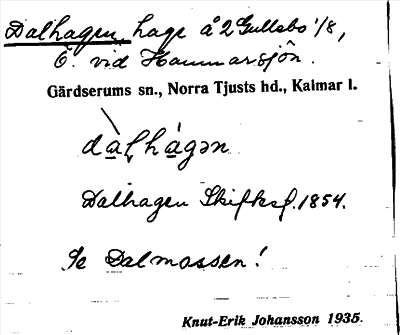 Dalhagen, hage å 2 Gullebo 1/8,
Ö. vid Hammarsjön.
Gärdserums sn., Norra Tjusts hd., Kalmar l.
dàl̥hágən
Dalhagen Skifksf. 1854.
Se Dalmossen!
Knut-Erik Johansson 1935.